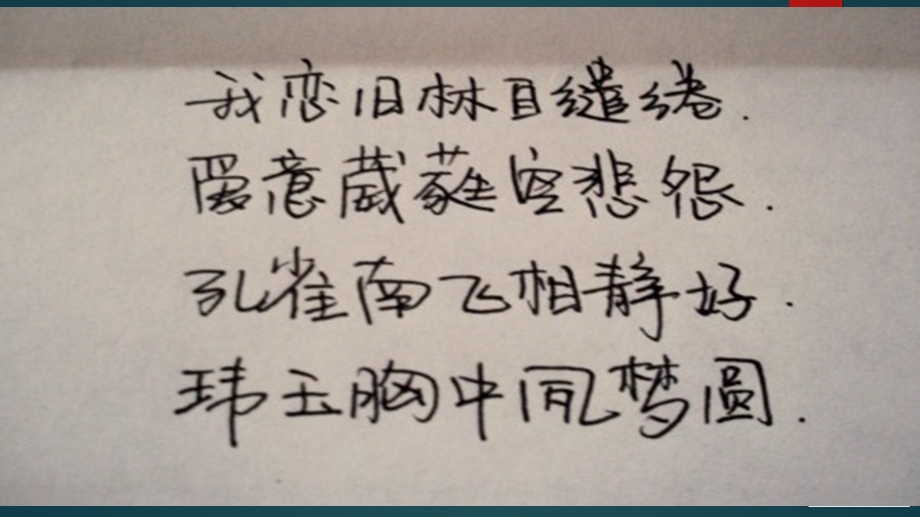 我恋旧林目缱绻.
爱意葳蕤空悲怨.
孔雀南飞相静好.
玮玉胸中同梦圆.